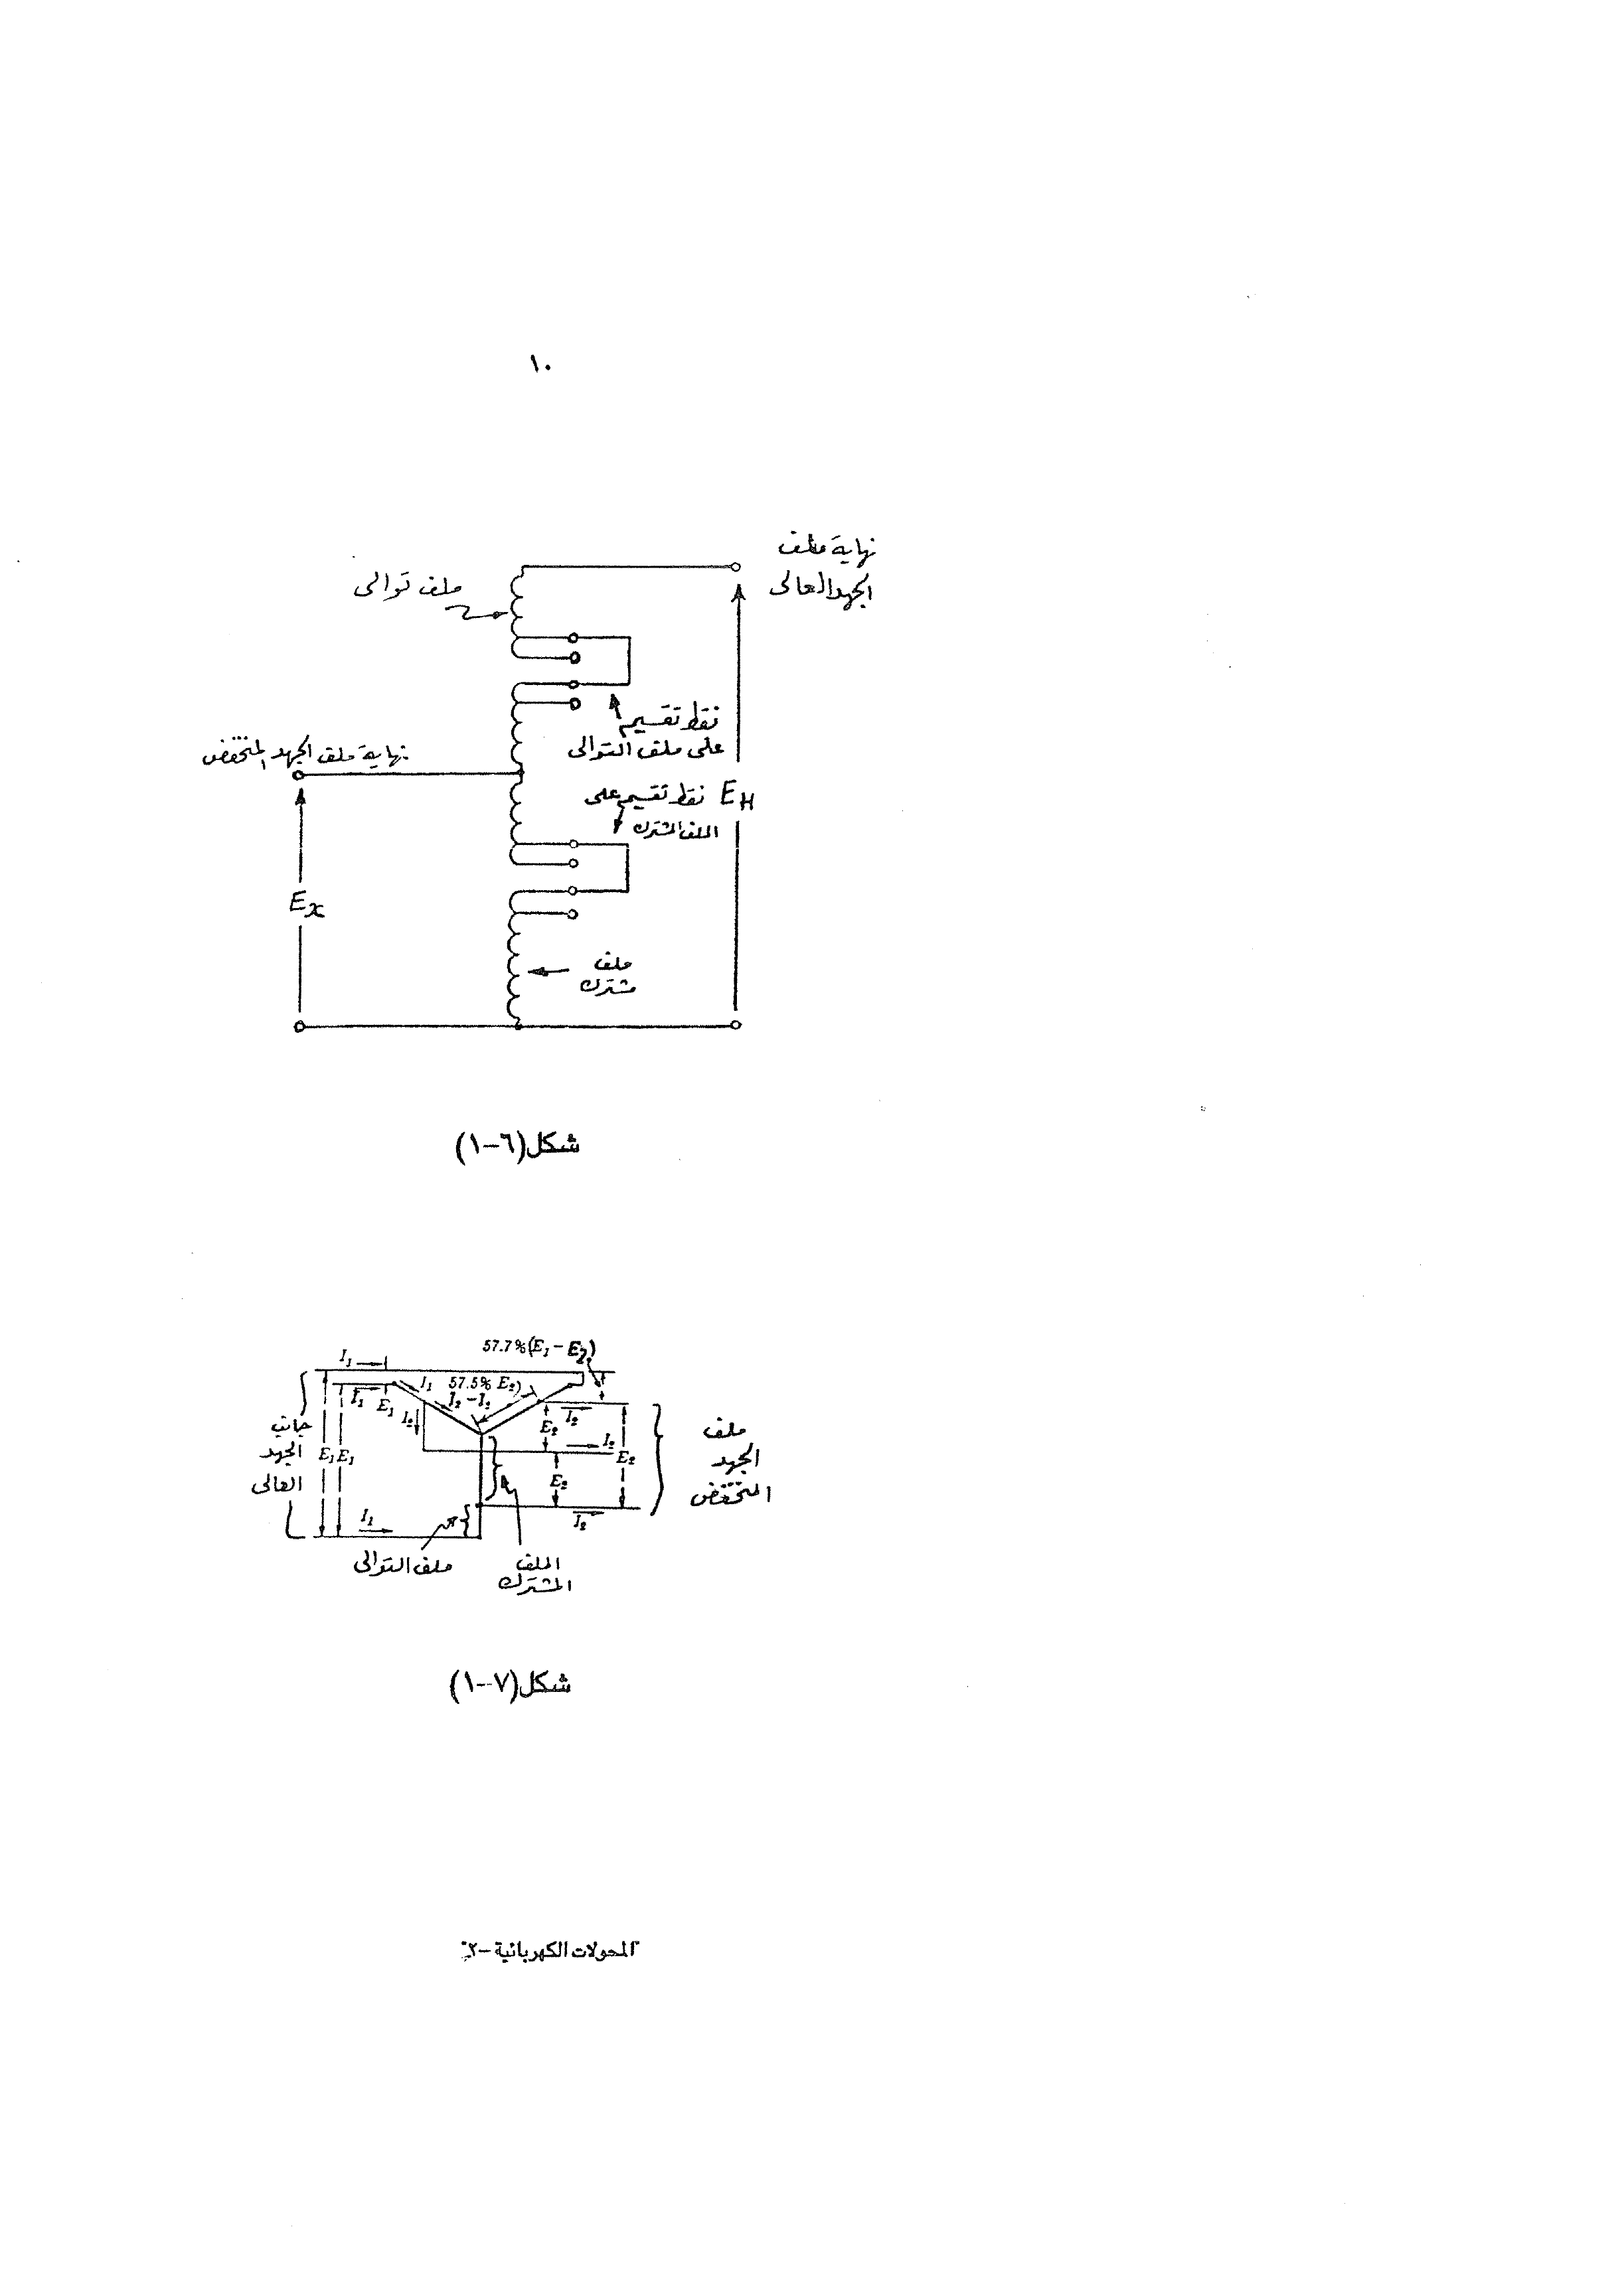 ١٠
نهاية ملف
الجهد العالى
ملف توالى
نقط تقسيم
على ملف التوالى
نهاية ملف الجهد المنخفض
نقط تقسيم على
الملف المشترك
E_H
E_x
ملف
مشترك
شكل (٦-١)
57.7% (E₁ - E₂)
I₁
I₁
57.5% E₂)
I₁
E₁
I₂ - I₁
I₂
I₂
E₂
I₂
E₁
E₁
E₂
E₂
I₁
I₂
جانب
الجهد
العالى
ملف
الجهد
المنخفض
ملف التوالى
الملف
المشترك
شكل (٧-١)
المحولات الكهربائية -٢